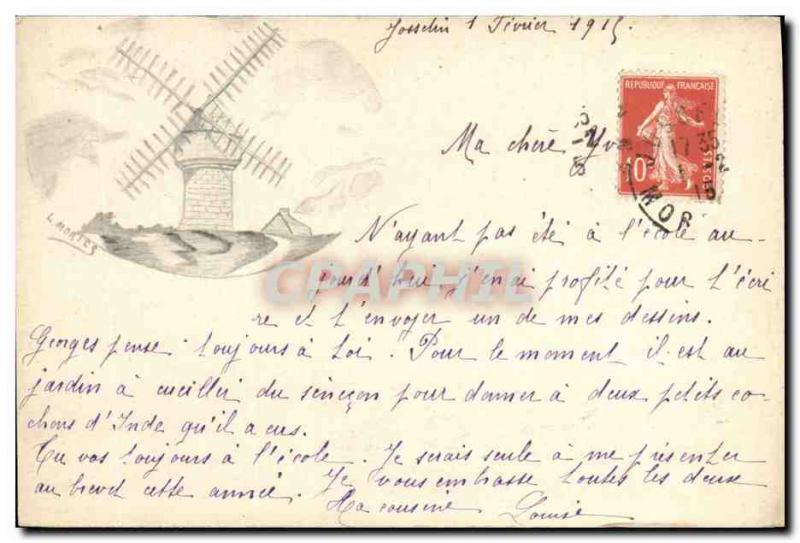 Josselin 1 Février 1915.
RÉPUBLIQUE FRANÇAISE
10
POSTES
17 35
MOR
Ma chère
N'ayant pas été à l'école au-
jourd'hui j'en ai profité pour t'écri
re et t'envoyer un de mes dessins.
Georges pense toujours à toi. Pour le moment il est au
jardin à cueillir du séneçon pour donner à deux petits co-
chons d'Inde qu'il a eus.
Tu vas toujours à l'école. Je serais seule à me présenter
au brevet cette année. Je vous embrasse toutes les deux
Ta cousine Louise
L. MONTER
CPAPHIL